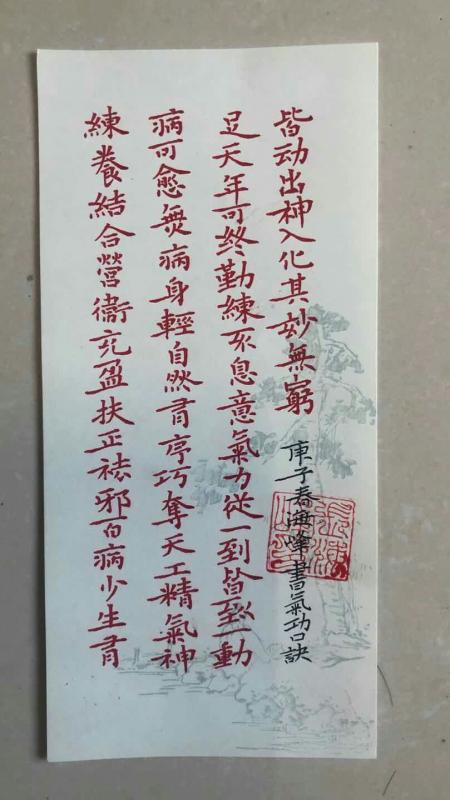 練養結合營衛充盈扶正祛邪百病少生有
病可愈無病身輕自然有序巧奪天工精氣神
足天年可終勤練不息意氣力從一到皆到一動
皆动出神入化其妙無窮
庚子春海峰書氣功口訣